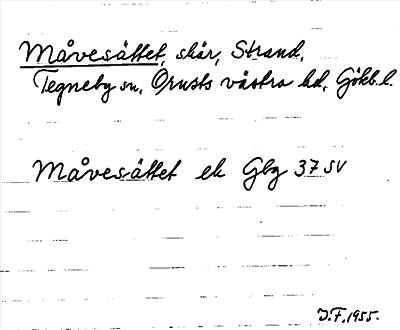 Måvesättet, skär, Strand,
Tegneby sn, Orusts västra hd, Gökb. l.
Måvesättet ek Gbg 37 SV
J.F. 1955.